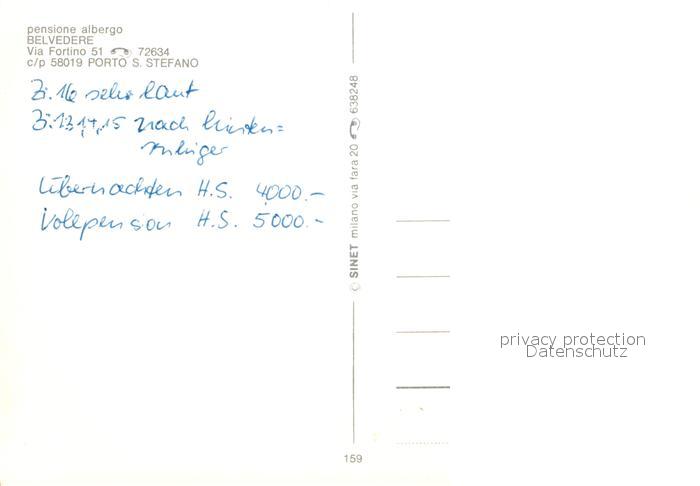 pensione albergo
BELVEDERE
Via Fortino 51 ☎ 72634
c/p 58019 PORTO S. STEFANO
Zi. 16 sehr laut
Zi. 13, 14, 15 nach hinten =
ruhiger
Übernachten H.S. 4000.-
Vollpension H.S. 5000.-
© SINET milano via fara 20 ☎ 638248
privacy protection
Datenschutz
159